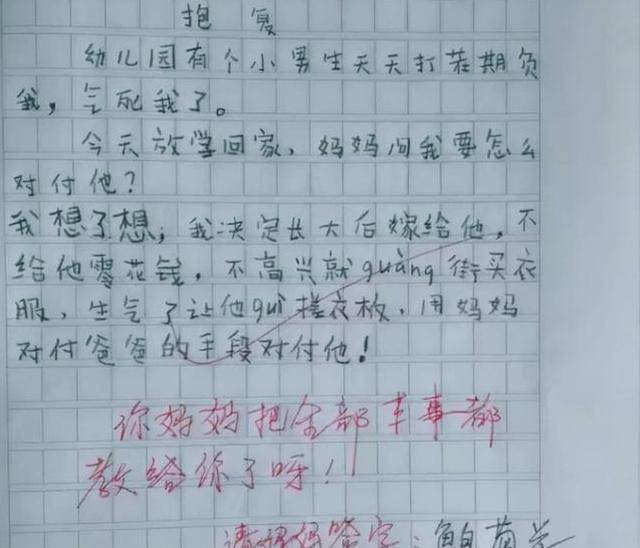 抱复
幼儿园有个小男生天天打茬期负
我，气死我了。
今天放学回家，妈妈问我要怎么
对付他？
我想了想，我决定长大后嫁给他，不
给他零花钱，不高兴就guàng街买衣
服，生气了让他guì搓衣板，用妈妈
对付爸爸的手段对付他！
你妈妈把全部本事都
教给你了呀！
请妈妈签字：鲍